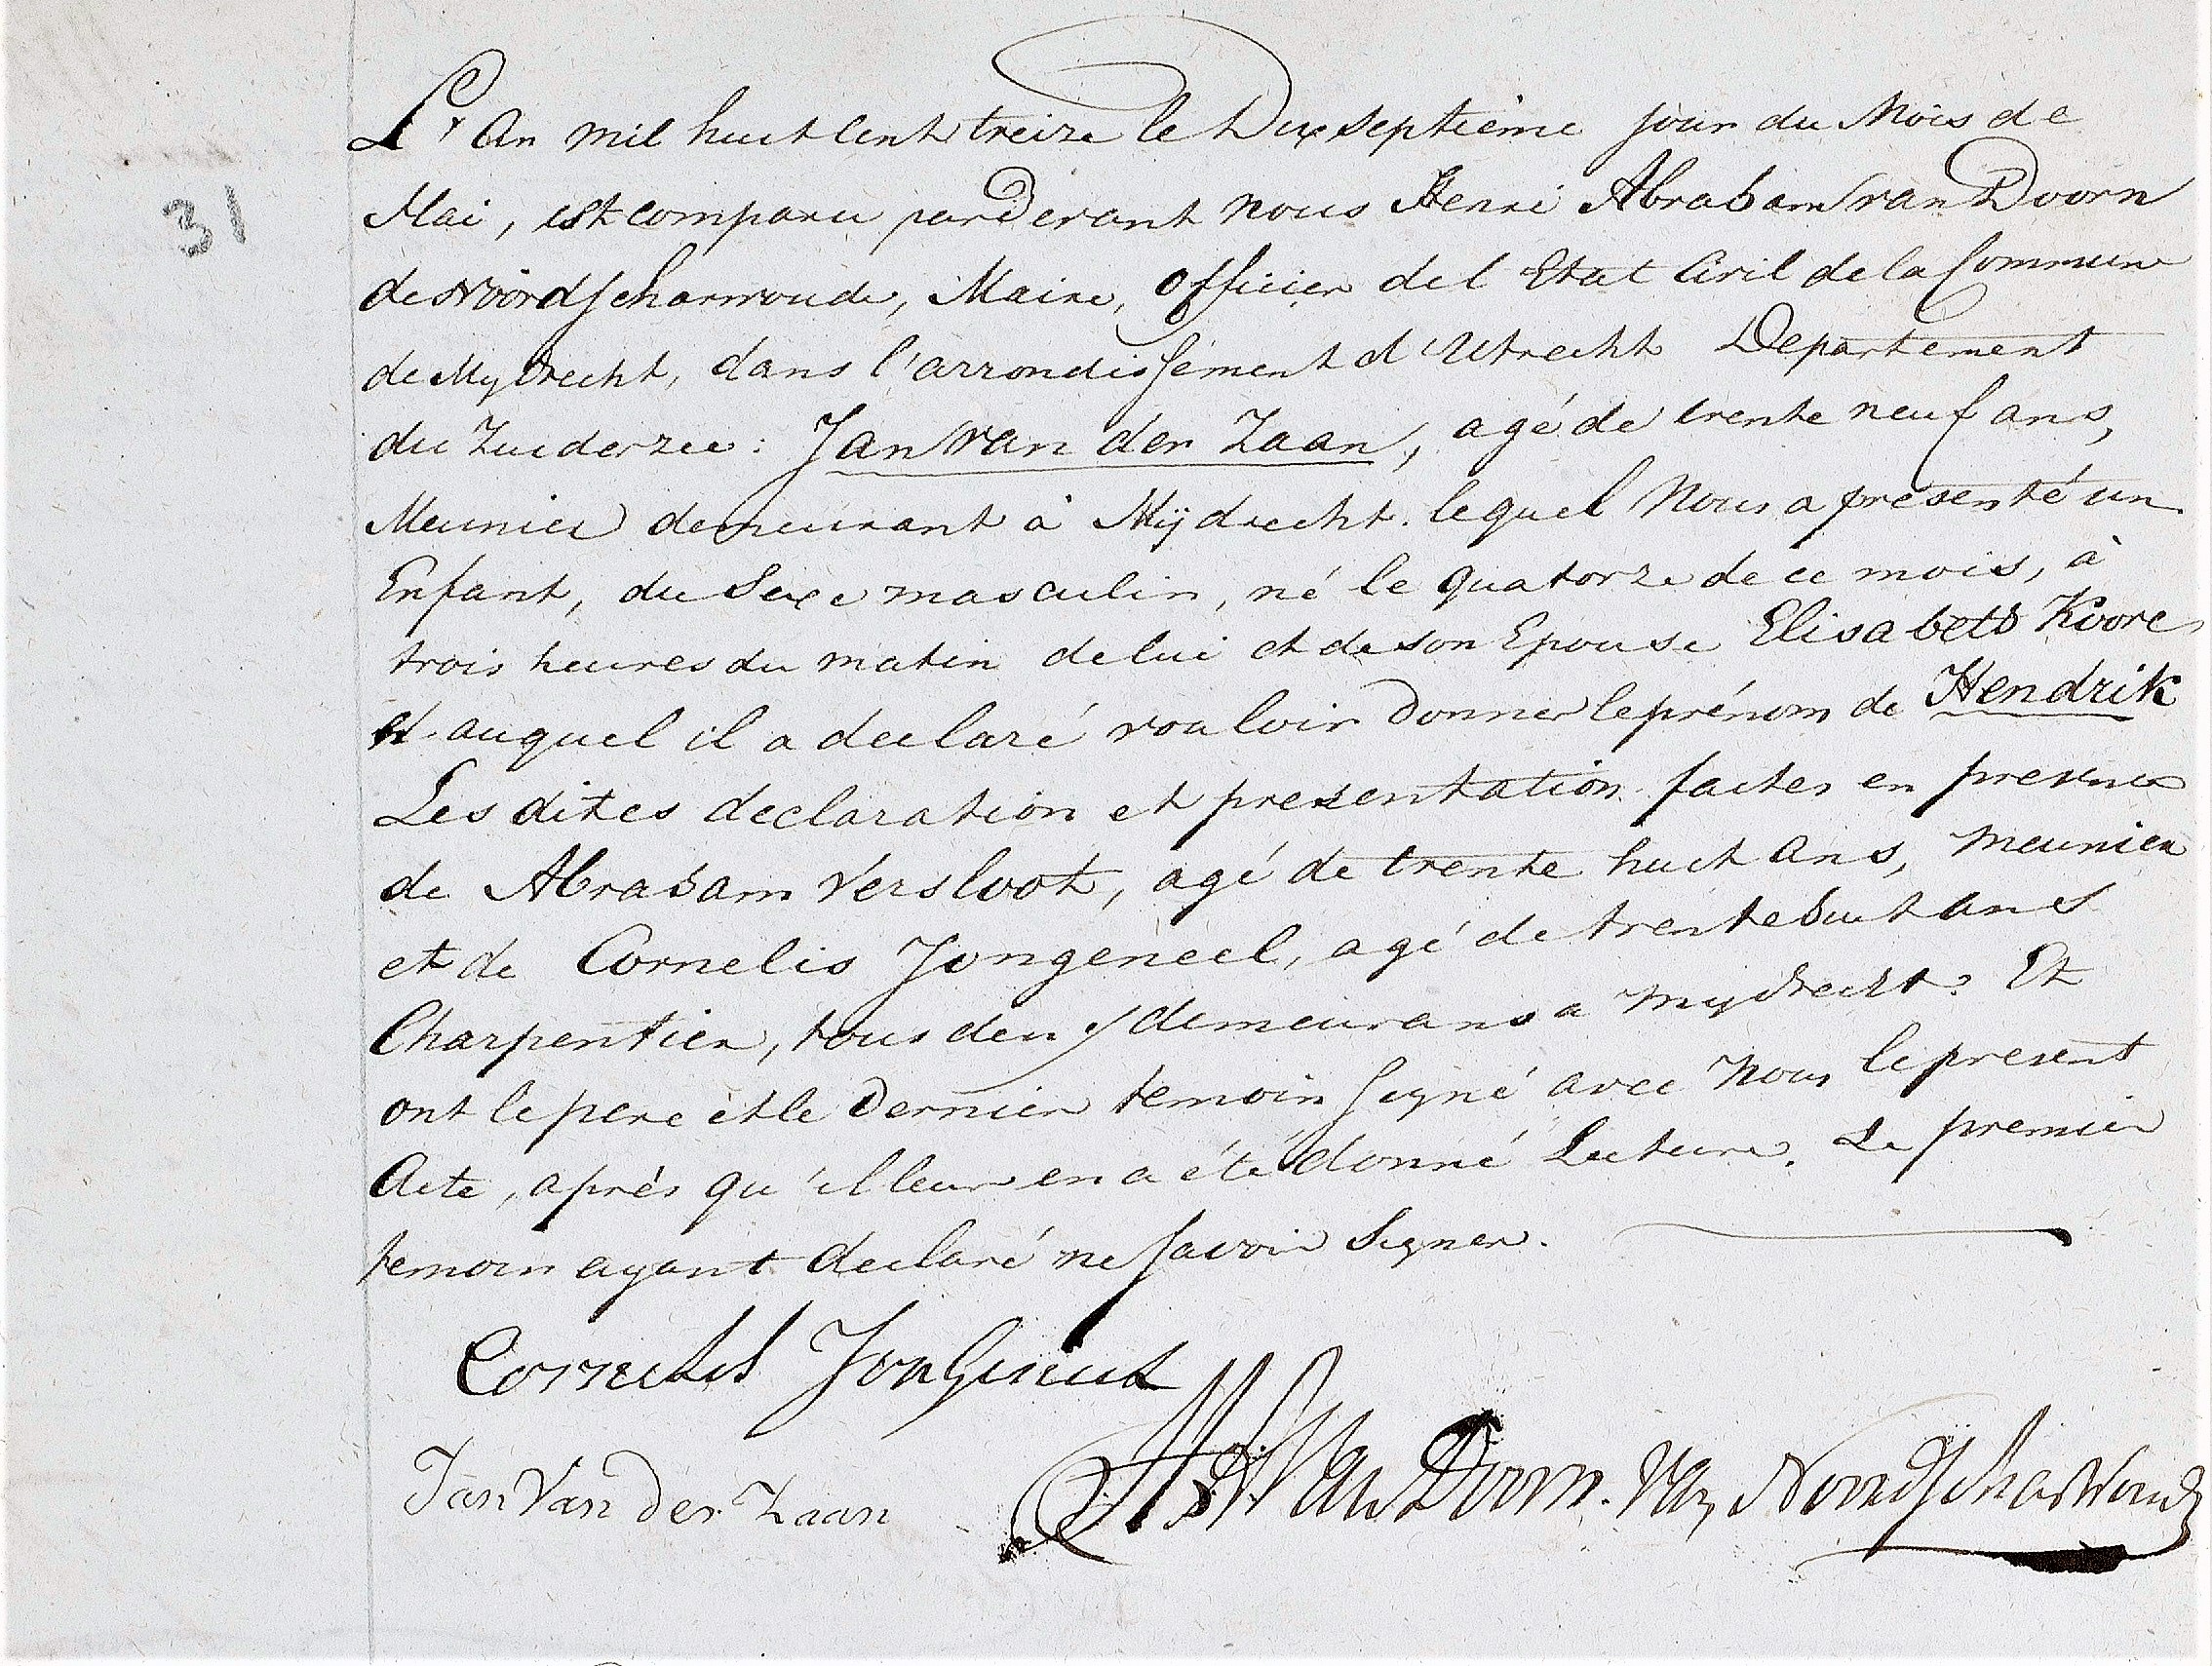 31
L'An mil huit cent treize le Dixseptieme jour du Mois de
Mai, est comparu parDevant nous Henri Abraham van Doorn
de Noordscharwoude, Maire, Officier del Etat Civil de la Commune
de Mydrecht, dans l'arrondissement d'Utrecht Departement
du Zuiderzee: Jan van der Zaan, agé de trente neuf ans,
Meunier demeurant à Mijdrecht. lequel Nous a presenté un
Enfant, du Sexe masculin, né le quatorze de ce mois, à
trois heures du matin de lui et de son Epouse Elisabeth
et auquel il a declaré vouloir Donner le prénom de Hendrik
Les dites declaration et presentation faites en presence
de Abraham Versloot, agé de trente huit ans, meunier
et de Cornelis Jongeneel, agé de trente huit ans
Charpentier, tous deux demeurans a Mydrecht. Et
ont le pere et le Dernier temoin Signé avec Nous le present
Acte, après qu'il leur en a été donné Lecture. Le premier
temoin ayant declaré ne Savoir Signer.
Cornelis Jongeneel
Jan Van Der Zaan
H: A: Van Doorn. Van Noordscharwoude